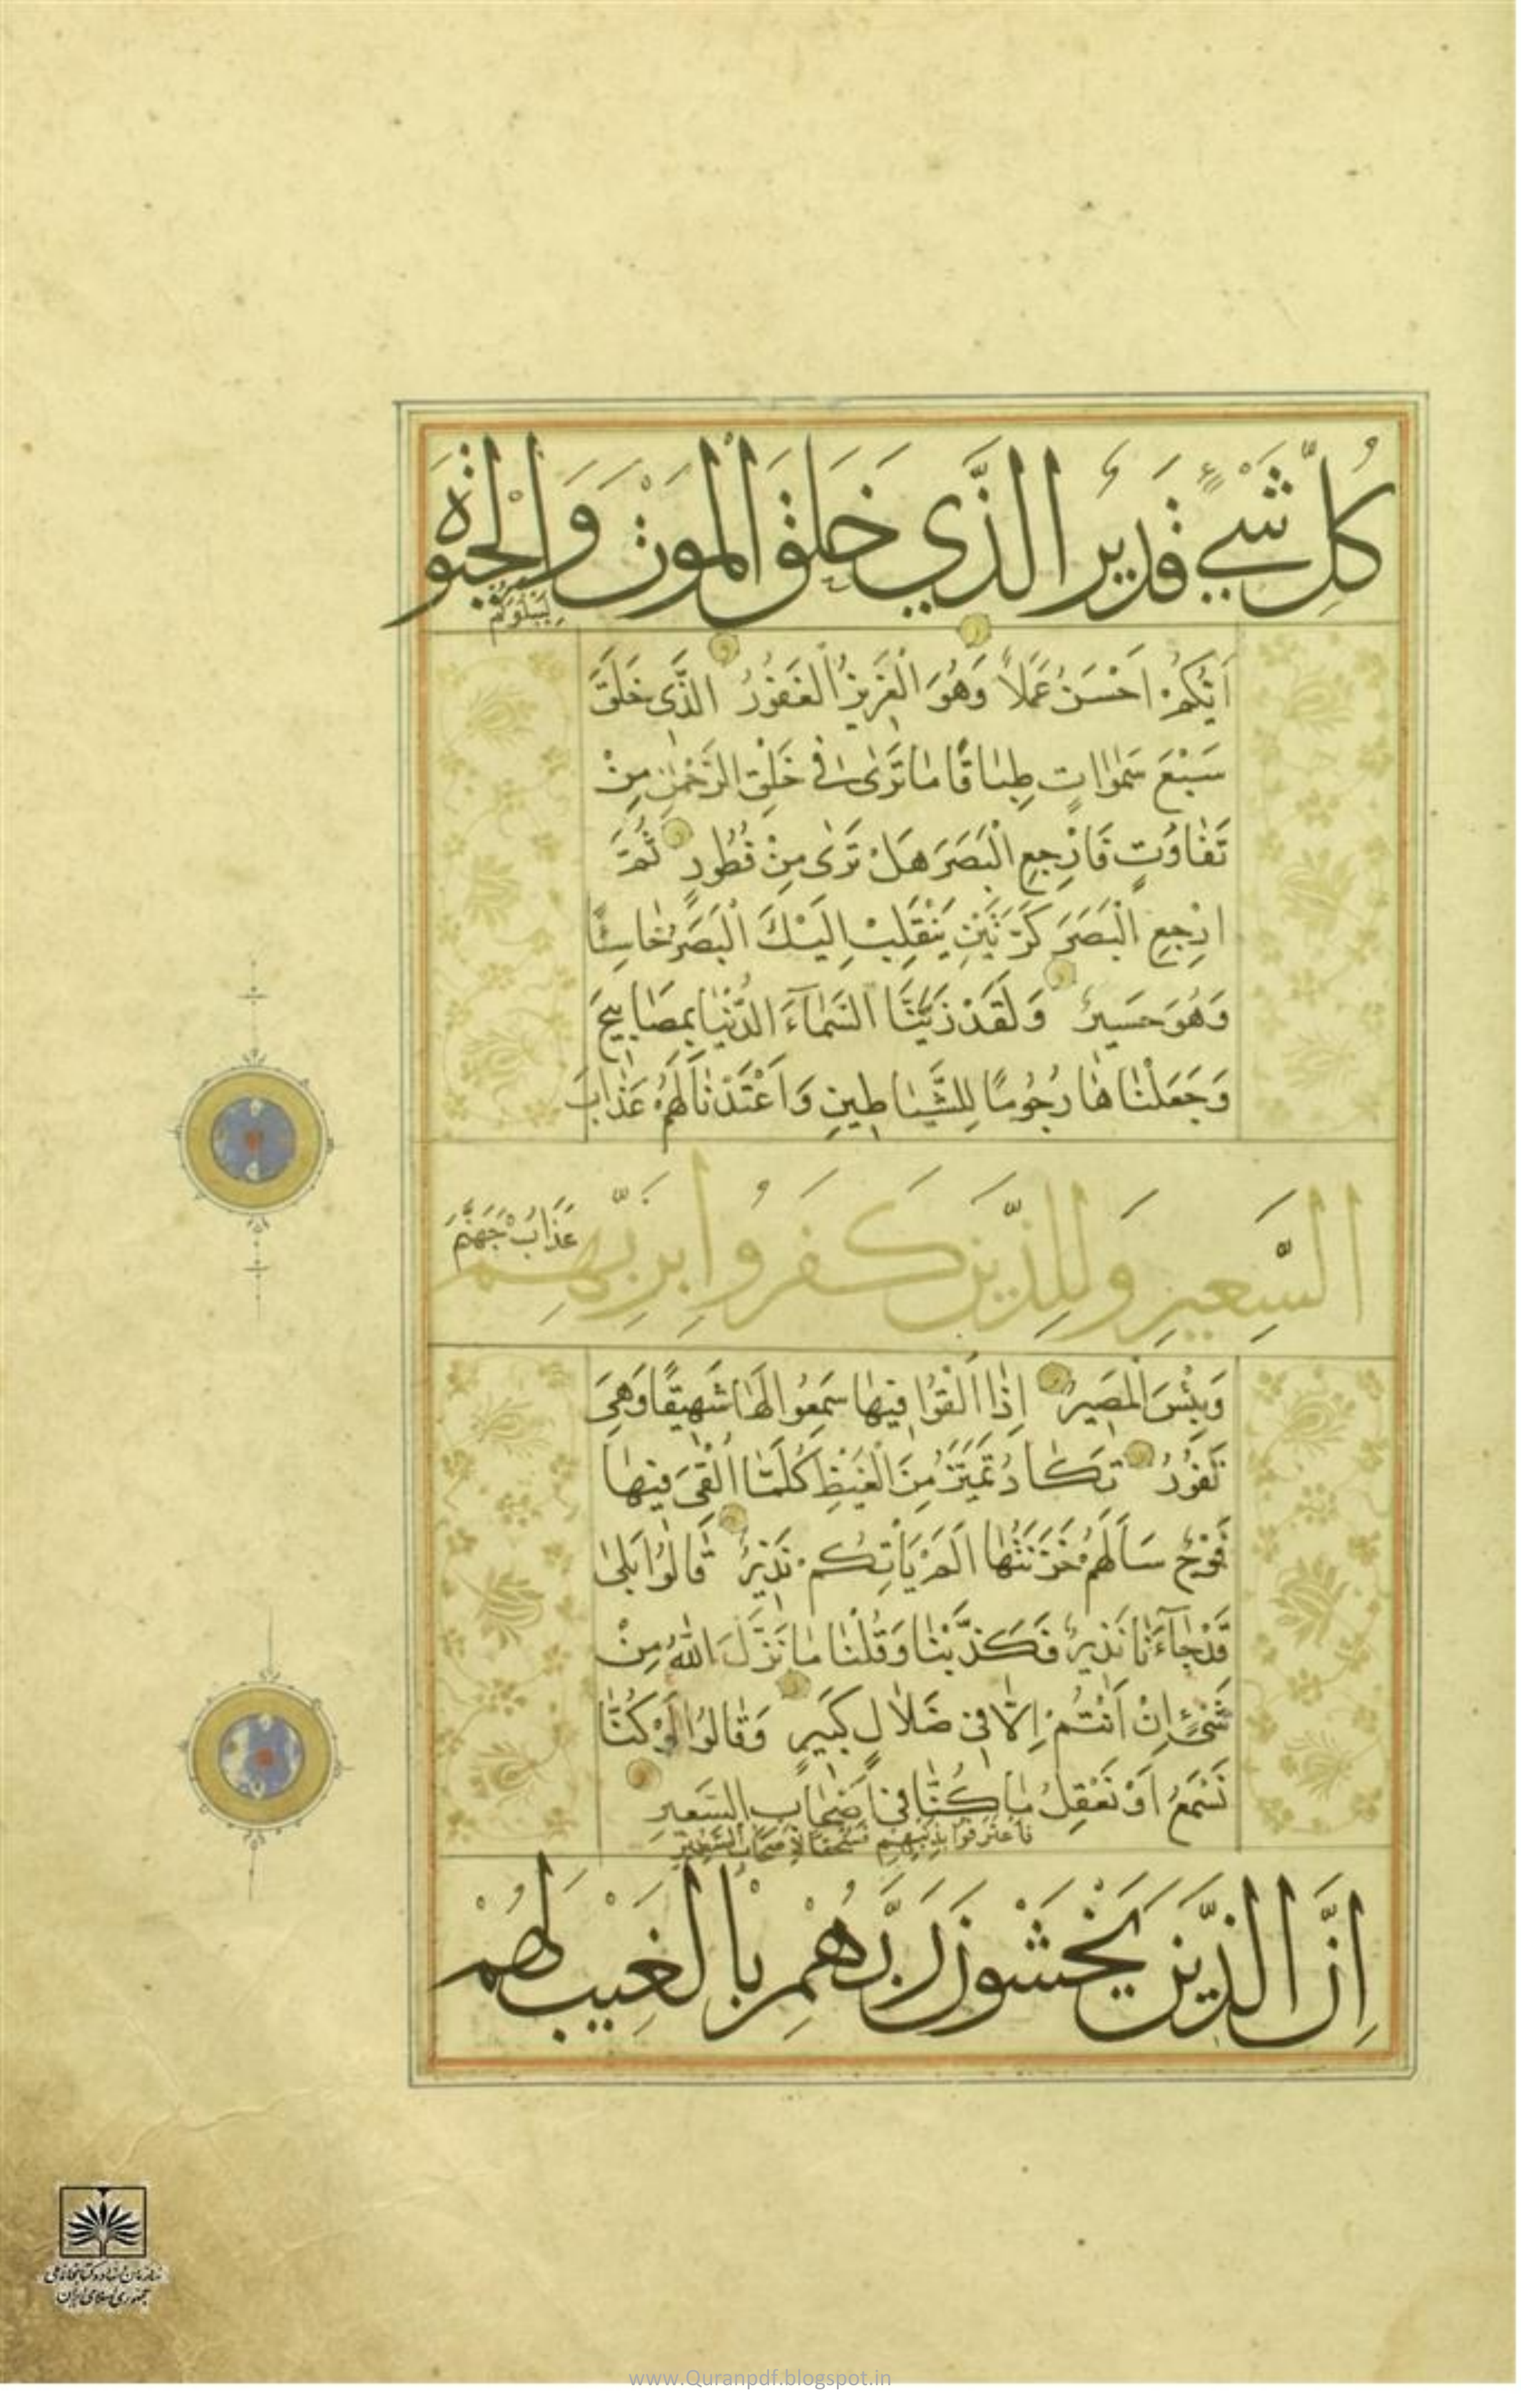 كُلِّ شَيْءٍ قَدِيرٌ الَّذِي خَلَقَ الْمَوْتَ وَالْحَيٰوةَ
لِيَبْلُوَكُمْ
اَيُّكُمْ اَحْسَنُ عَمَلًا وَهُوَ الْعَزِيزُ الْغَفُورُ الَّذِى خَلَقَ
سَبْعَ سَمٰوَاتٍ طِبَاقًا مَا تَرٰى فِى خَلْقِ الرَّحْمٰنِ مِنْ
تَفَاوُتٍ فَارْجِعِ الْبَصَرَ هَلْ تَرٰى مِنْ فُطُورٍ ثُمَّ
ارْجِعِ الْبَصَرَ كَرَّتَيْنِ يَنْقَلِبْ اِلَيْكَ الْبَصَرُ خَاسِئًا
وَهُوَ حَسِيرٌ وَلَقَدْ زَيَّنَّا السَّمَآءَ الدُّنْيَا بِمَصَابِيحَ
وَجَعَلْنَاهَا رُجُومًا لِلشَّيَاطِينِ وَاَعْتَدْنَا لَهُمْ عَذَابَ
السَّعِيرِ وَلِلَّذِينَ كَفَرُوا بِرَبِّهِمْ
عَذَابُ جَهَنَّمَ
وَبِئْسَ الْمَصِيرُ اِذَا اُلْقُوا فِيهَا سَمِعُوا لَهَا شَهِيقًا وَهِىَ
تَفُورُ تَكَادُ تَمَيَّزُ مِنَ الْغَيْظِ كُلَّمَا اُلْقِىَ فِيهَا
فَوْجٌ سَاَلَهُمْ خَزَنَتُهَا اَلَمْ يَاْتِكُمْ نَذِيرٌ قَالُوا بَلٰى
قَدْ جَآءَنَا نَذِيرٌ فَكَذَّبْنَا وَقُلْنَا مَا نَزَّلَ اللّٰهُ مِنْ
شَىْءٍ اِنْ اَنْتُمْ اِلَّا فِى ضَلَالٍ كَبِيرٍ وَقَالُوا لَوْ كُنَّا
نَسْمَعُ اَوْ نَعْقِلُ مَا كُنَّا فِى اَصْحَابِ السَّعِيرِ
فَاعْتَرَفُوا بِذَنْبِهِمْ فَسُحْقًا لِاَصْحَابِ السَّعِيرِ
اِنَّ الَّذِينَ يَخْشَوْنَ رَبَّهُمْ بِالْغَيْبِ لَهُمْ
سازمان اسناد و کتابخانه ملی
جمهوری اسلامی ایران
www.Quranpdf.blogspot.in